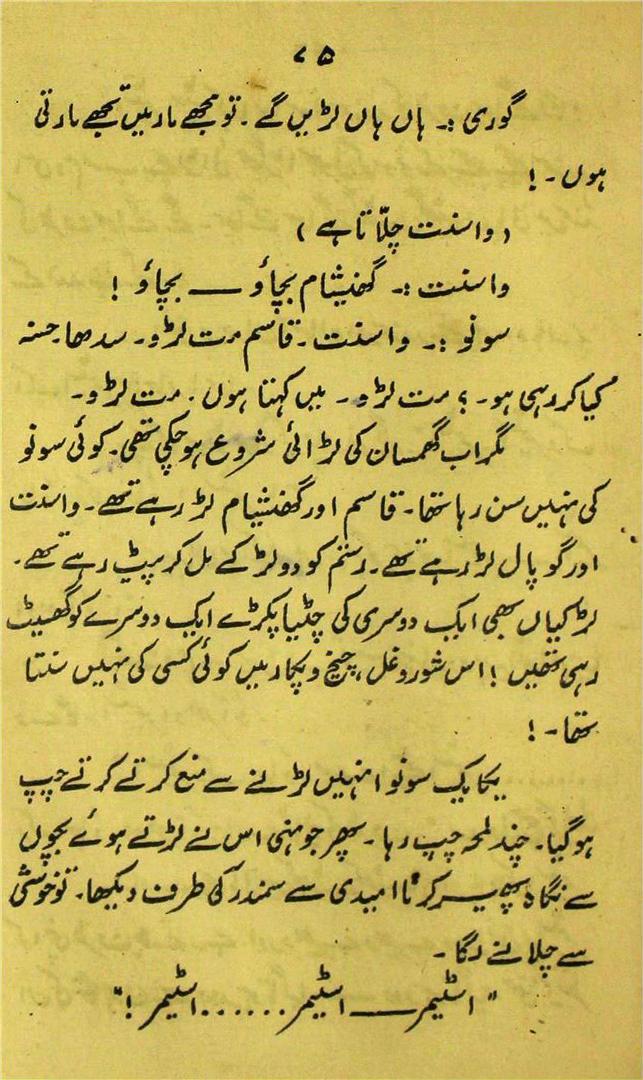 ۷۵
گوری :۔ ہاں ہاں لڑیں گے۔ تو مجھے مار میں تجھے مارتی
ہوں۔!
(واسنت چلّاتا ہے)
واسنت :۔ گھنیشام بچاؤ ــــ بچاؤ !
سونو :۔ واسنت۔ قاسم مت لڑو۔ سدھا۔ حسنہ
کیا کر رہی ہو۔؟ مت لڑو۔ میں کہتا ہوں۔ مت لڑو۔
مگر اب گھمسان کی لڑائی شروع ہو چکی تھی۔ کوئی سونو
کی نہیں سن رہا تھا۔ قاسم اور گھنشیام لڑ رہے تھے۔ واسنت
اور گوپال لڑ رہے تھے۔ رستم کو دو لڑکے مل کر پیٹ رہے تھے۔
لڑکیاں بھی ایک دوسری کی چٹیا پکڑے ایک دوسرے کو گھسیٹ
رہی تھیں ! اس شور و غل، چیخ و پکار میں کوئی کسی کی نہیں سنتا
تھا۔ !
یکایک سونو انہیں لڑنے سے منع کرتے کرتے چپ
ہو گیا۔ چند لمحہ چپ رہا۔ پھر جونہی اس نے لڑتے ہوئے بچوں
سے نگاہ پھیر کر ناامیدی سے سمندر کی طرف دیکھا۔ تو خوشی
سے چلانے لگا۔
"اسٹیمر ــــ اسٹیمر ...... اسٹیمر !"